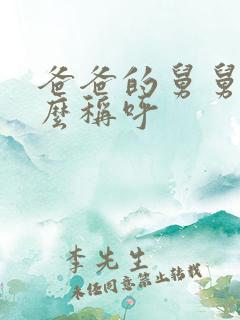 爸爸的舅舅
麼稱呼
李先生
未经同意禁止转载